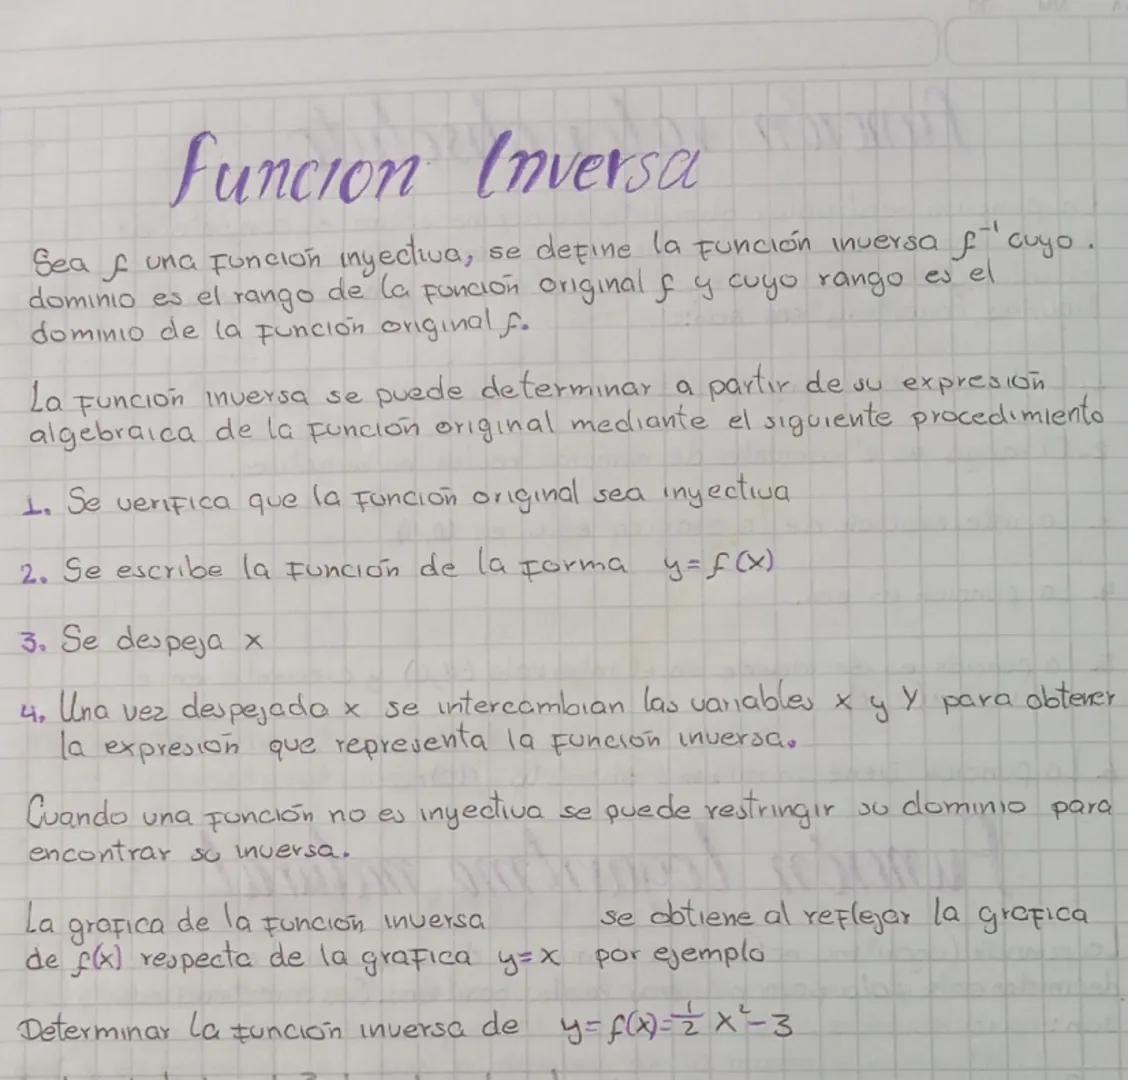 Funcion Inversa
Sea f una Función inyectiva, se define la Función inversa f⁻¹ cuyo.
dominio es el rango de la función original f y cuyo rango es el
dominio de la Función original f.
La Función inversa se puede determinar a partir de su expresión
algebraica de la función original mediante el siguiente procedimiento
1. Se verifica que la Función original sea inyectiva
2. Se escribe la Función de la Forma y=f(x)
3. Se despeja x
4. Una vez despejado x se intercambian las variables x y Y para obtener
la expresión que representa la Función inversa.
Cuando una función no es inyectiva se puede restringir su dominio para
encontrar su inversa.
La grafica de la Función inversa se obtiene al reflejar la grafica
de f(x) respecta de la grafica y=x por ejemplo
Determinar la función inversa de y=f(x)=½ x²-3